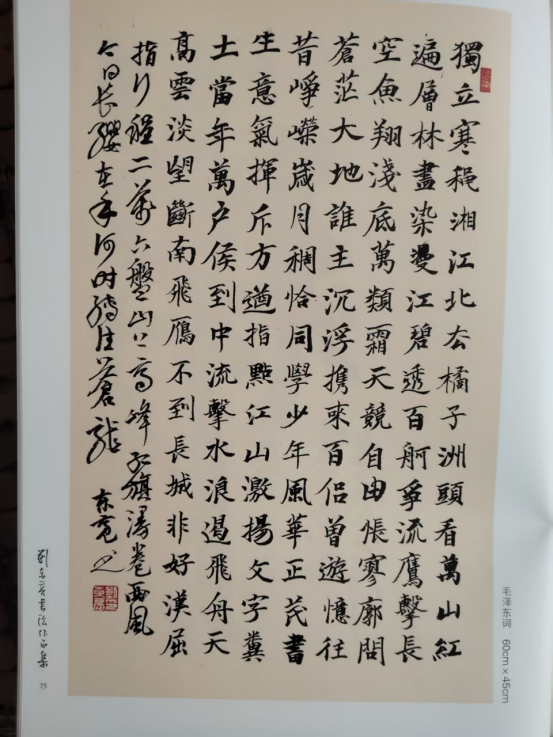 獨立寒穐湘江北去橘子洲頭看萬山紅
遍層林盡染曼江碧透百舸爭流鷹擊長
空魚翔淺底萬類霜天競自由悵寥廓問
蒼茫大地誰主沉浮携來百侣曾遊憶往
昔崢嶸歲月稠恰同學少年風華正茂書
生意氣揮斥方遒指點江山激揚文字糞
土當年萬户侯到中流擊水浪遏飛舟天
高雲淡望斷南飛鴈不到長城非好漢屈
指行程二萬六盤山上高峰紅旗漫卷西風
今日長纓在手何時縛住蒼龍
东亮书
毛泽东词 60cm×45cm
刘东亮书法作品集
75